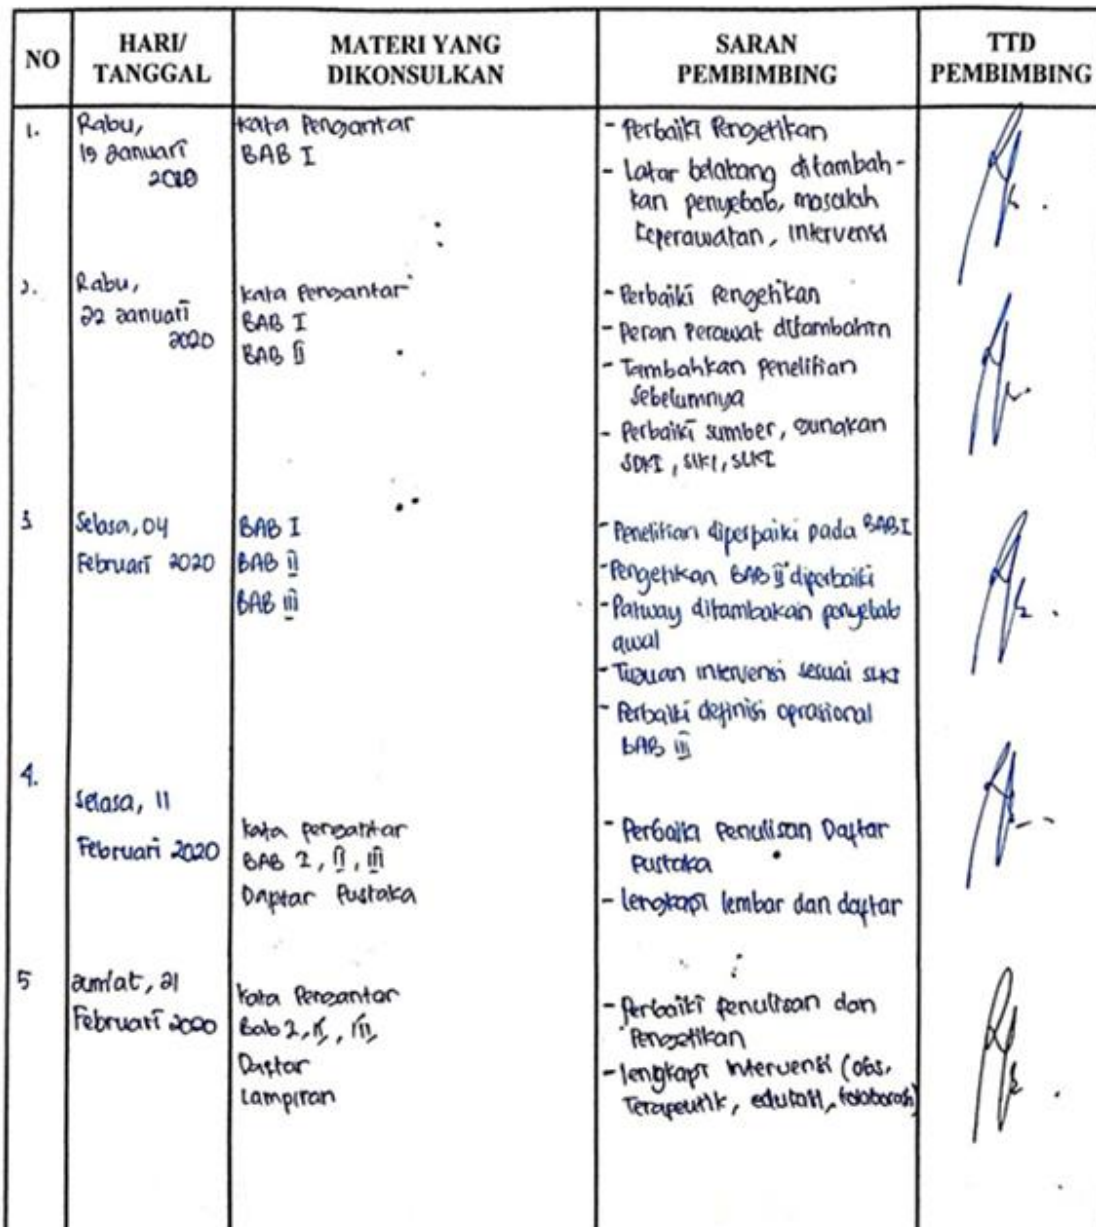 NO
HARI/
TANGGAL
MATERI YANG
DIKONSULKAN
SARAN
PEMBIMBING
TTD
PEMBIMBING
1.
Rabu,
Januari
Kata Pengantar
BAB I
- Perbaiki Pengetikan
- Latar belakang ditambah-
kan penyebab, masalah
keperawatan, intervensi
2.
Rabu,
22 Januari
2020
Kata Pengantar
BAB I
BAB II
- Perbaiki Pengetikan
- Peran Perawat
- Tambahkan Penelitian
Sebelumnya
- Perbaiki sumber, gunakan
SDKI, SIKI, SLKI
3
Selasa, 04
Februari 2020
BAB I
BAB II
BAB III
- Penelitian diperbaiki pada BAB I
- Pengetikan BAB II diperbaiki
- Patway ditambakan penyebab
awal
- Tujuan intervensi sesuai SLKI
- Perbaiki definisi oprasional
BAB III
4.
Selasa, 11
Februari 2020
Kata pengantar
BAB I, II, III
Daptar Pustaka
- Perbaiki Penulisan Daftar
Pustaka
- lengkapi lembar dan daftar
5
Jum'at, 21
Februari 2020
Kata Pengantar
Bab I, II, III
Daftar
Lampiran
- Perbaiki penulisan dan
Pengetikan
- lengkapi intervensi (obs,
Terapeutik, edukasi, kolaborasi)